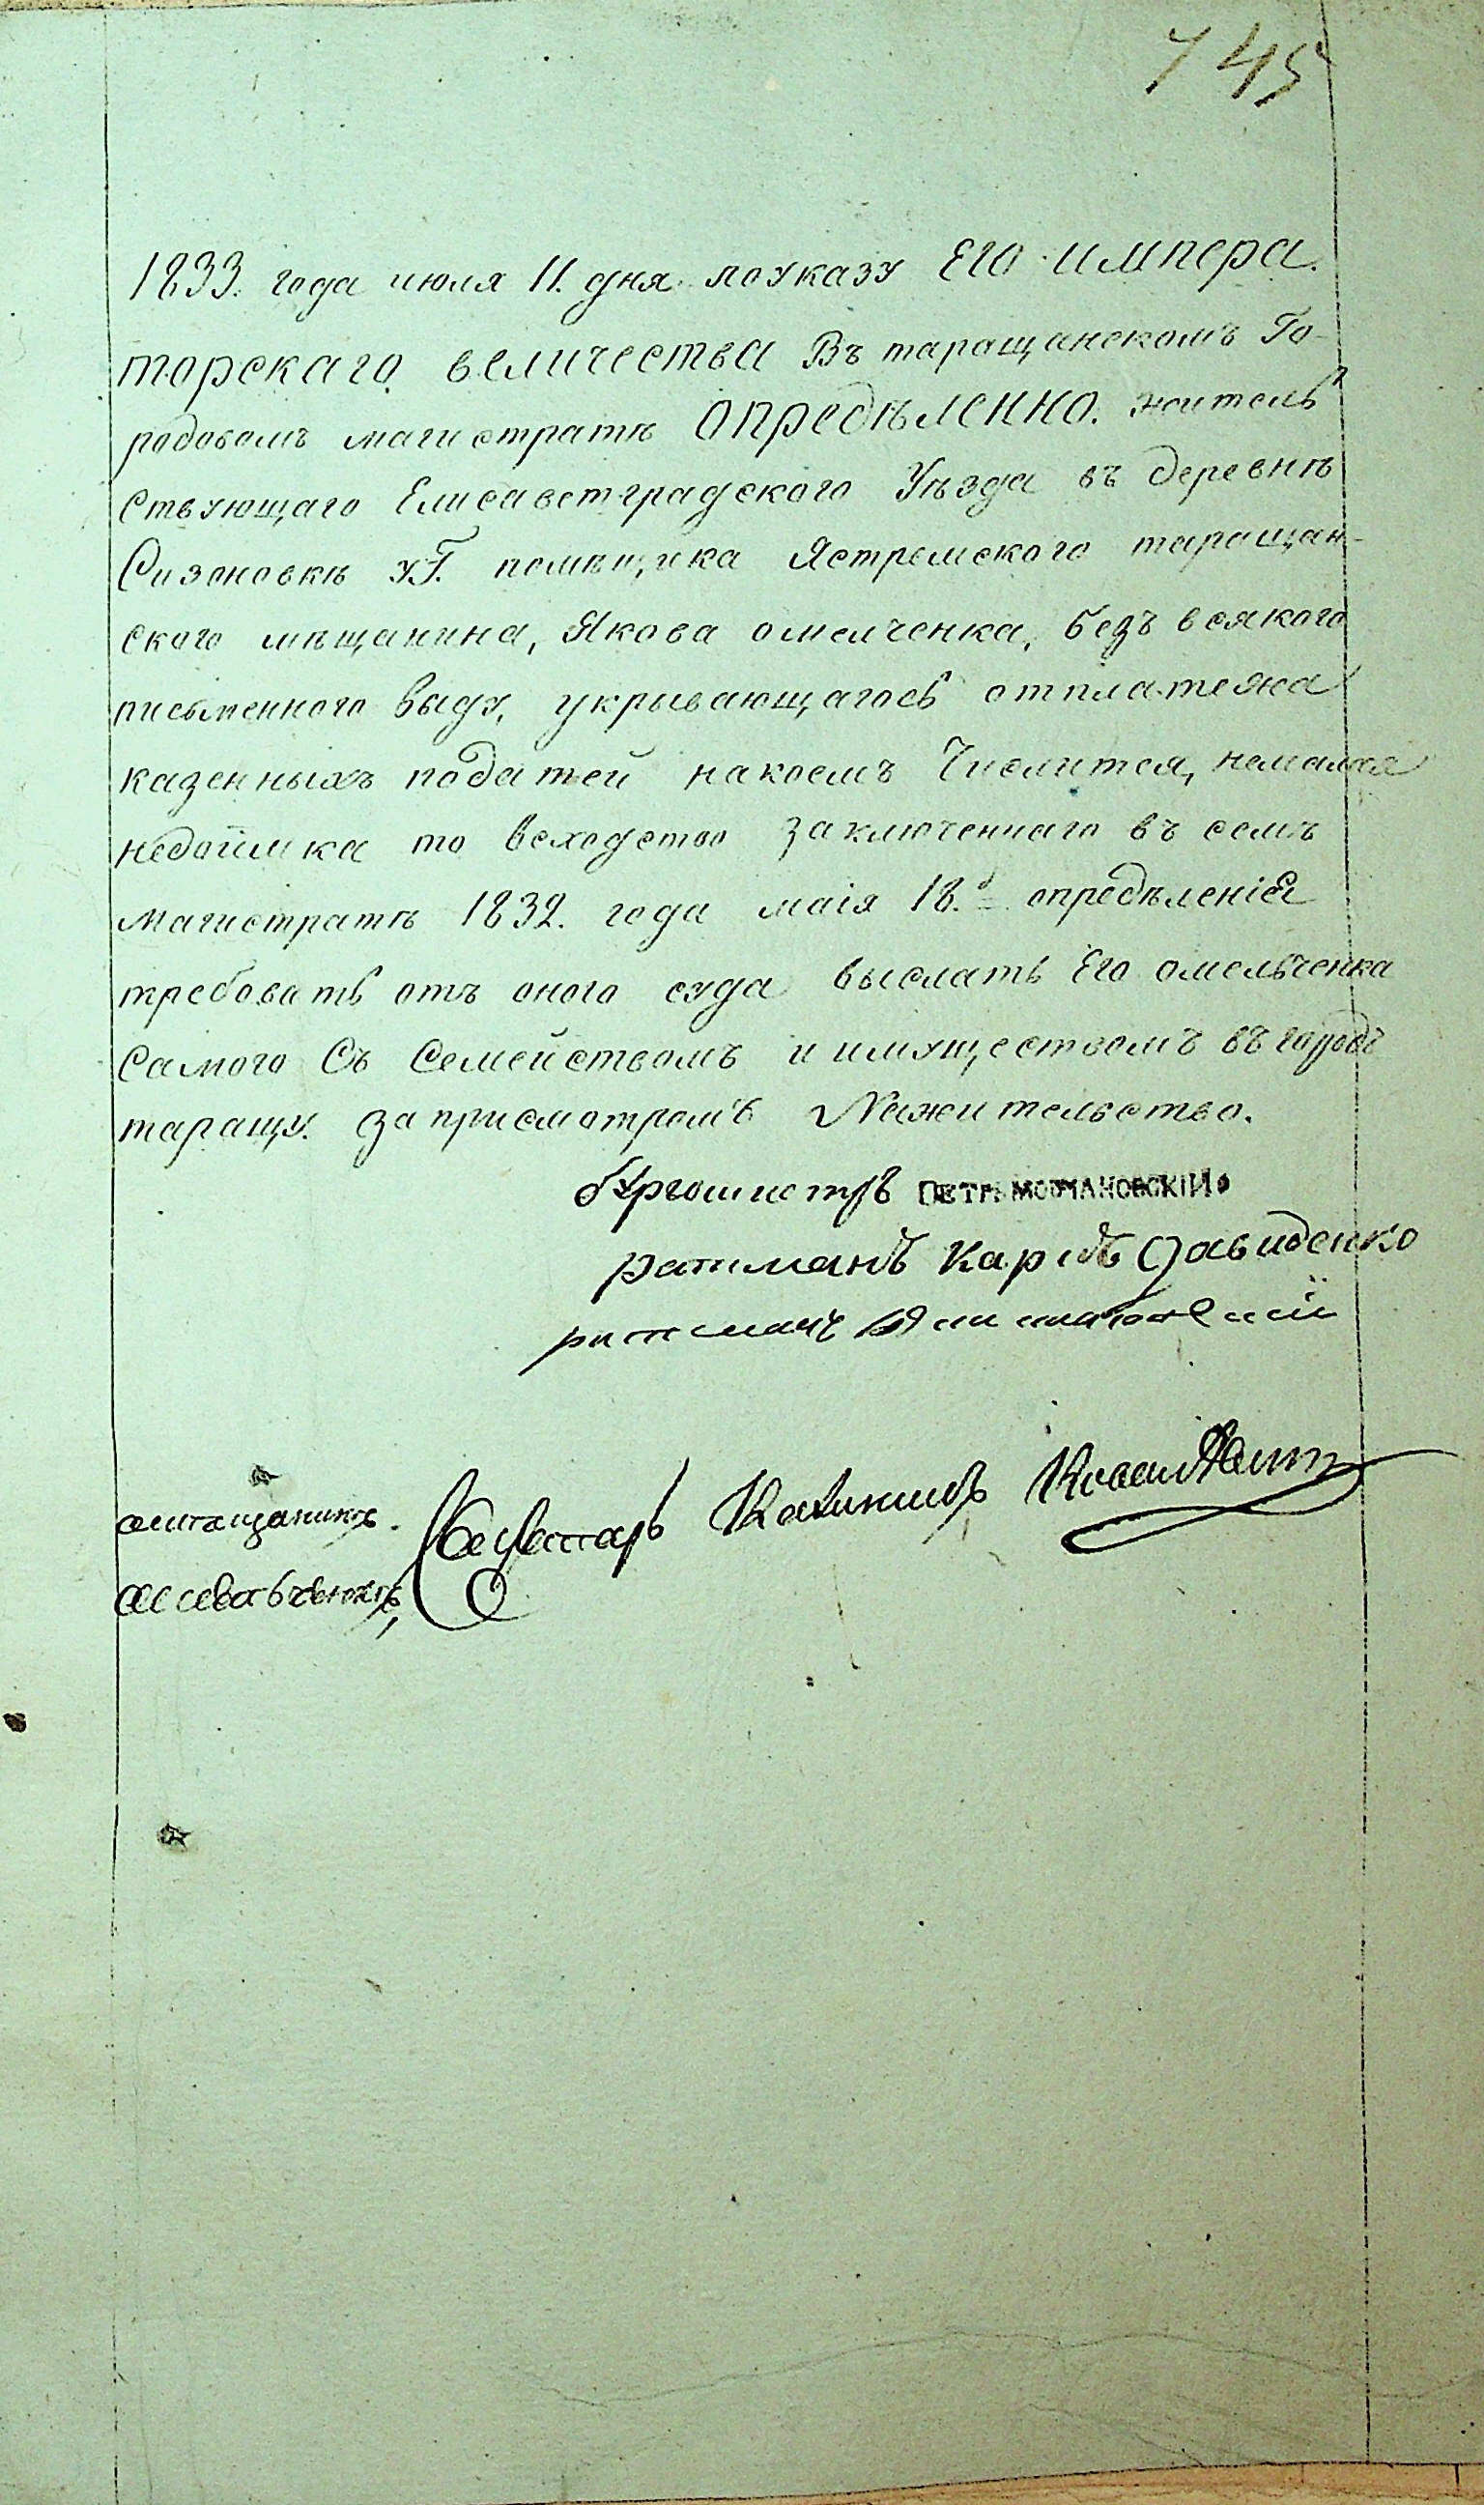 745
1833. года июля 11. дня поуказу Его импера.
торскаго величества Въ таращанскомъ Го-
родовомъ магистратѣ опредѣленно. житель
ствующаго Елисаветградского Уѣзда въ деревнѣ
Сизоновкѣ у Г. помѣщика Ястремского таращан-
ского мѣщанина, Якова омелченка, безъ всякого
письменного виду, укрывающагось отплатежа
казенныхъ податей накоемъ Числится, немалая
недоимка то всходство заключеннаго въ семъ
магистратѣ 1832. года маія 18.го опредѣленія
требовать отъ оного суда выслать Его омельченка
самого Съ Семействомъ и имуществомъ въ городъ
таращу. за присмотромъ Нажительство.
бургомистръ ПЕТРЪ МОВЧАНОВСКІЙ
ратманъ Карпъ Давиденко
ратманъ
Секретарь